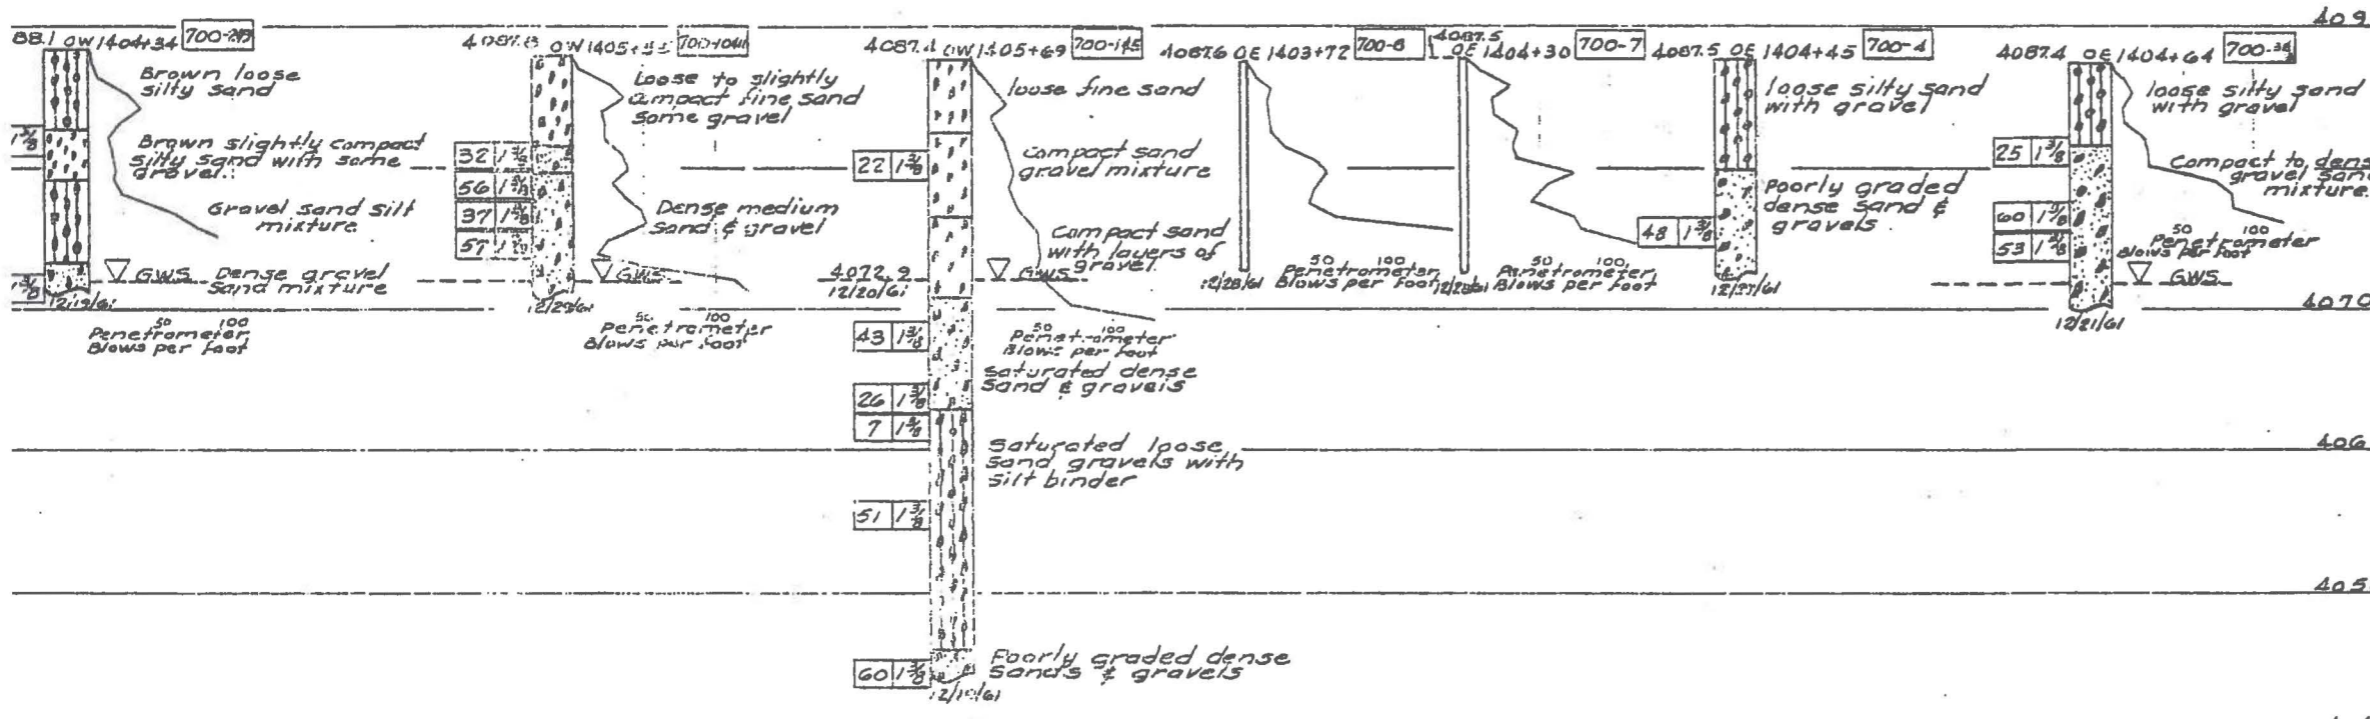 409
88.1 OW 1404+34
Brown loose
silty sand
Brown slightly compact
silty sand with some
gravel.
Gravel sand silt
mixture
GWS Dense gravel
Sand mixture
12/19/61
50 100
Penetrometer
Blows per foot
4087.8 OW 1405+
Loose to slightly
compact fine sand
some gravel
32 1 3/8
56 1 3/8
37 1 3/8
57
Dense medium
Sand & gravel
GWS
12/29/61
50 100
Penetrometer
Blows per foot
4087.4 OW 1405+69 700-145
loose fine sand
22 1 3/8
Compact sand
gravel mixture
Compact sand
with layers of
gravel
4072.9
12/20/61
GWS
50 100
Penetrometer
Blows per foot
43 1 3/8
Saturated dense
Sand & gravels
26 1 3/8
7 1 3/8
Saturated loose
sand gravels with
silt binder
51 1 3/8
60 1 3/8
Poorly graded dense
Sands & gravels
4087.6 OE 1403+72
12/28/61
50 100
Penetrometer
Blows per Foot
4087.5
OE 1404+30 700-7
50 100
Penetrometer
Blows per foot
4087.5 OE 1404+45 700-4
loose silty sand
with gravel
Poorly graded
dense sand &
gravels
48 1 3/8
12/27/61
4087.4 OE 1404+64
loose silty sand
with gravel
25 1 3/8
Compact to dense
gravel sand
mixture.
60 1 3/8
53 1 3/8
50 100
Penetrometer
Blows per foot
GWS
12/21/61
4070
406
405